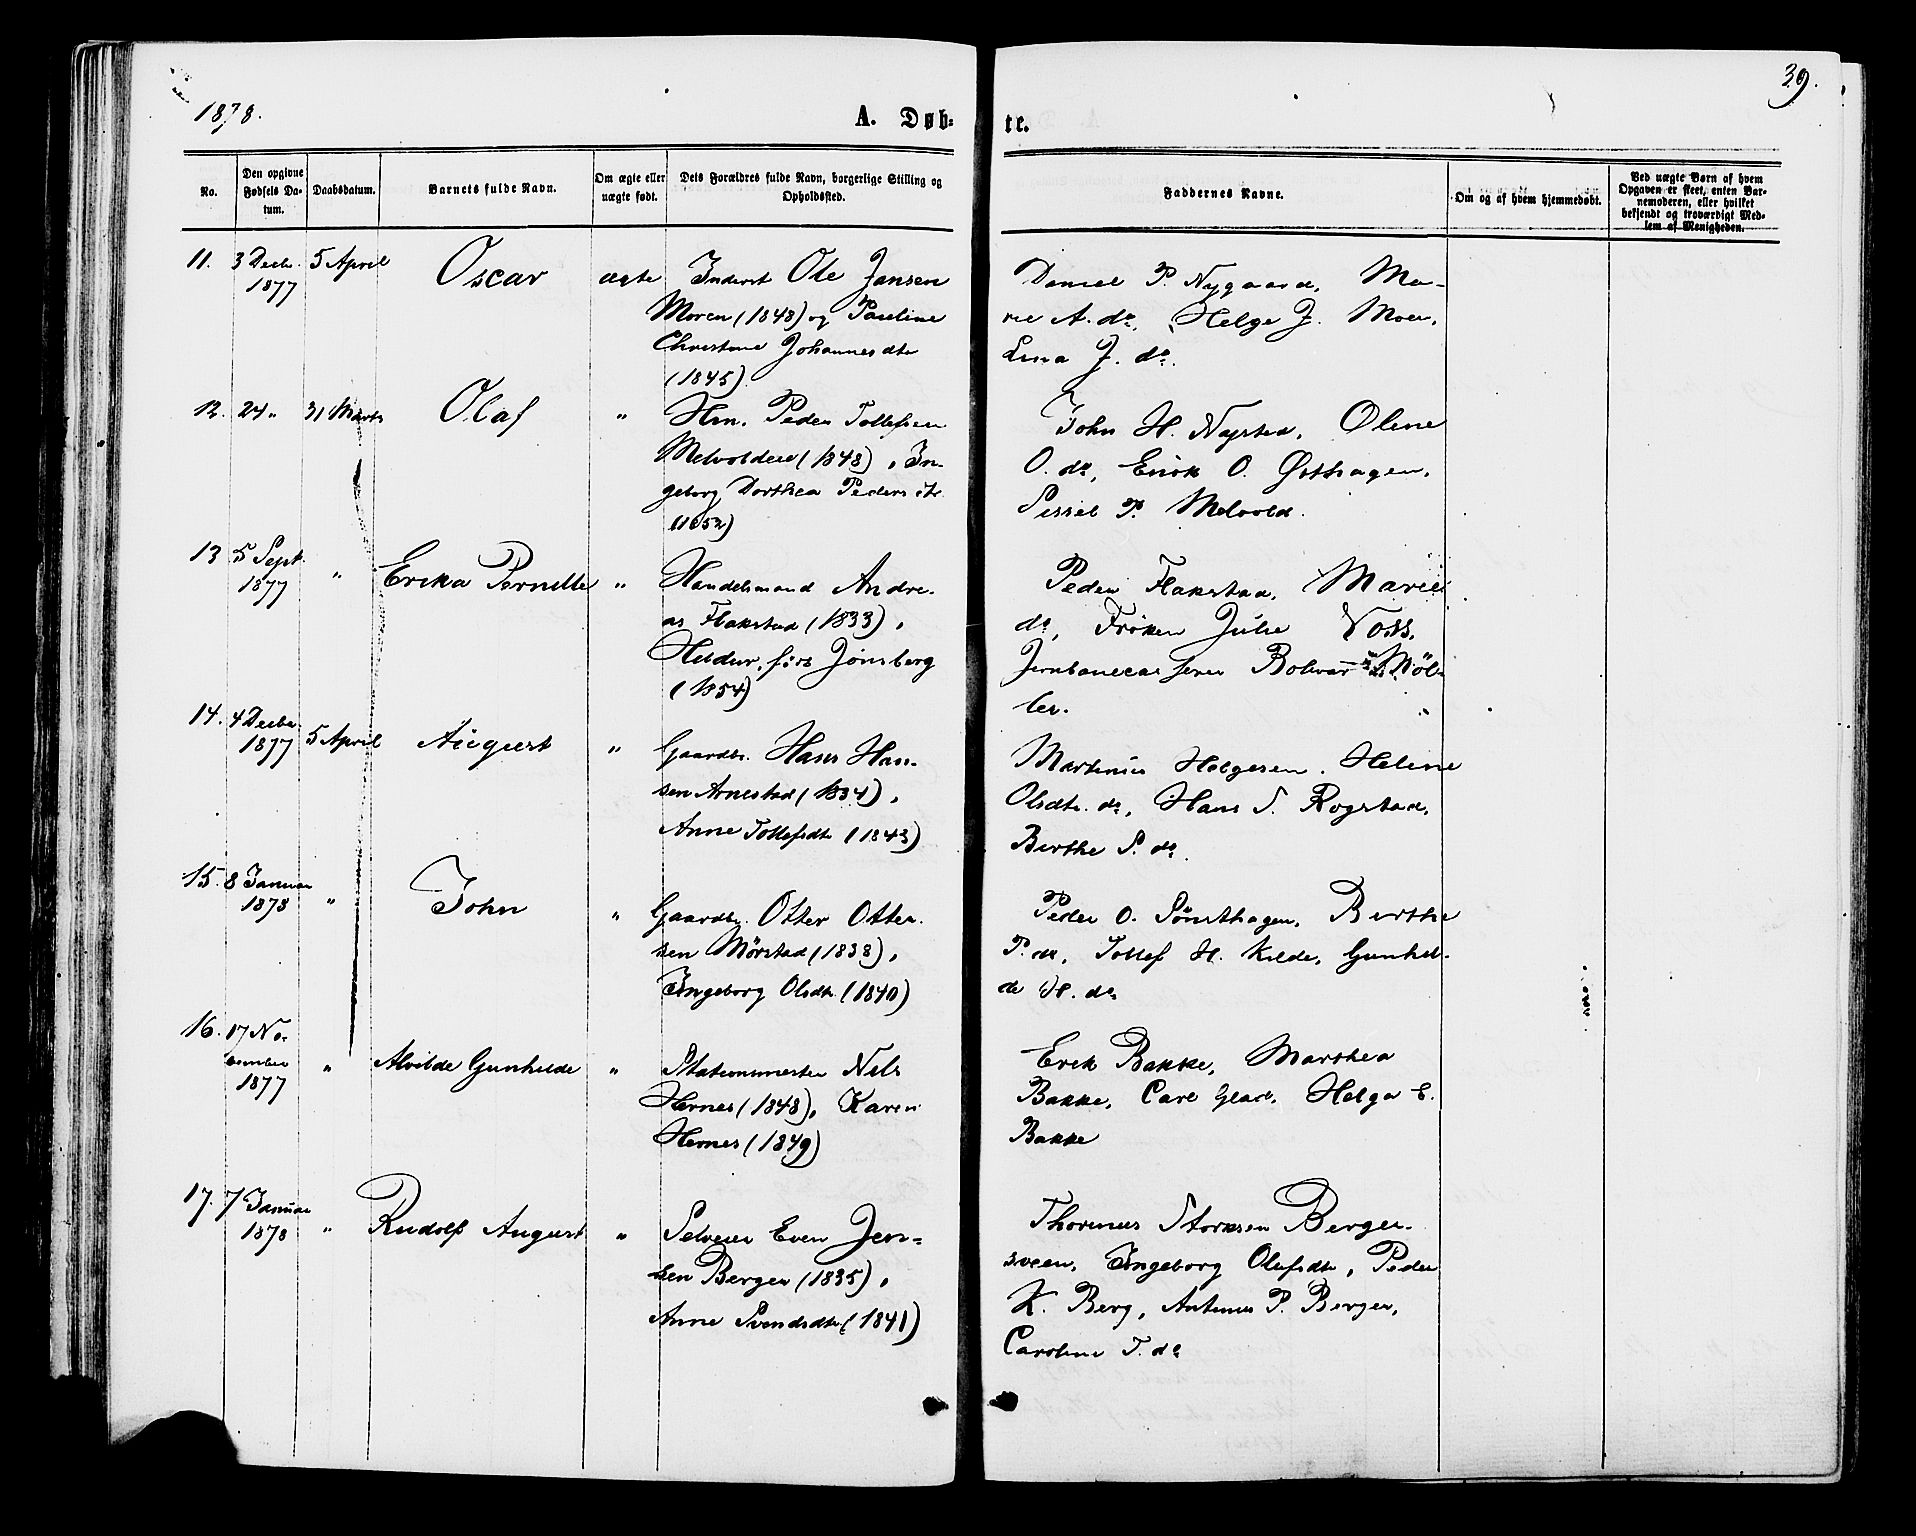 1878.
A. Døb-
te.
39.
No.
Den opgivne
Fødsels Da-
tum.
Daabsdatum.
Barnets fulde Navn.
Om ægte eller
uægte født.
Dets Forældres fulde Navn, borgerlige Stilling og
Opholdssted.
Faddernes Navne.
Om og af hvem hjemmedøbt.
Ved uægte Børn af hvem
Opgaven er skeet, enten Bar-
nemoderen, eller hvilket
bekjendt og troværdigt Med-
lem af Menigheden.
11. 3 Decbr. 5 April Oscar ægte Inderst Ole Jansen
1877
Moren (1848) og Pauline
Christine Johannesdtr
(1845).
Daniel P. Nygaard, Ma-
rie A. do, Helge J. Moen,
Lina J. do.
12. 24 " 31 Marts Olaf " Hm. Peder Tollefsen
Melvoldeie (1848), In-
geborg Dorthea Pedersdtr.
(1852)
John H. Nystad, Oline
O. do, Erick O. Østhagen,
Sissel P. Melvold.
13 5 Sept. " Erika Pernille " Handelsmand Andre-
1877
as Flakstad (1833),
født Jønsberg
(1854)
Peder Flakstad, Marie
do, Frøken Julie Voss,
Bolivar Møl-
ler.
14. 4 Decbr. 5 April August " Gaardbr. Hans Han-
1877
sen Arnestad (1834),
Anne Tollefsdtr (1843)
Martinus Helgesen, Heline
Olsdtr. do, Hans S. Rogstad,
Birthe S. do.
15. 8 Januar " John " Gaardbr. Otter Otter-
1878
sen Mørstad (1838),
Ingeborg Olsdtr (1840)
Peder O. Sønsthagen, Birthe
P. do, Tollef H. Kilde, Gunhil-
de H. do
16. 17 No-
vember " Alvilde Gunhilde " Stationsmester Nils
1877
Hernes (1848), Karen
Hernes (1849)
Erik Bakke, Marthea
Bakke, Carl Glad, Helga E.
Bakke
17. 7 Januar " Rudolf August " Selveier Even Jen-
1878
sen Bergen (1835),
Anne Svendsdtr (1841)
Thorinus Størksen Berger-
sveen, Ingeborg Olufsdtr, Peder
K. Berg, Antinus P. Bergen,
Caroline T. do